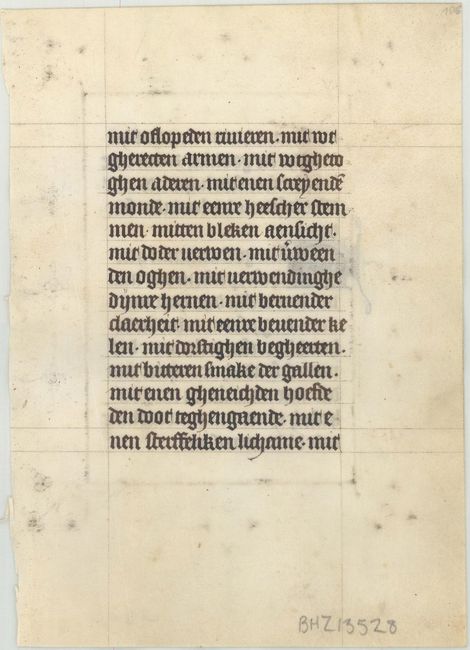 106
mit oflopeden riuieren · mit wt
gherecten armen · mit wtgheto
ghen aderen · mit enen screyendē
monde · mit eenre heescher stem
men · mitten bleken aensicht ·
mit doder uerwen · mit
den oghen · mit uerwendinghe
dijnre hernen · mit beruender
claerheit · mit eenre beuender ke
len · mit dorstighen begheerten ·
mit bitteren smake der gallen ·
mit enen gheneichden hoefde
den doot teghengaende · mit e
nen sterffeliken lichame · mit
BHZ13528